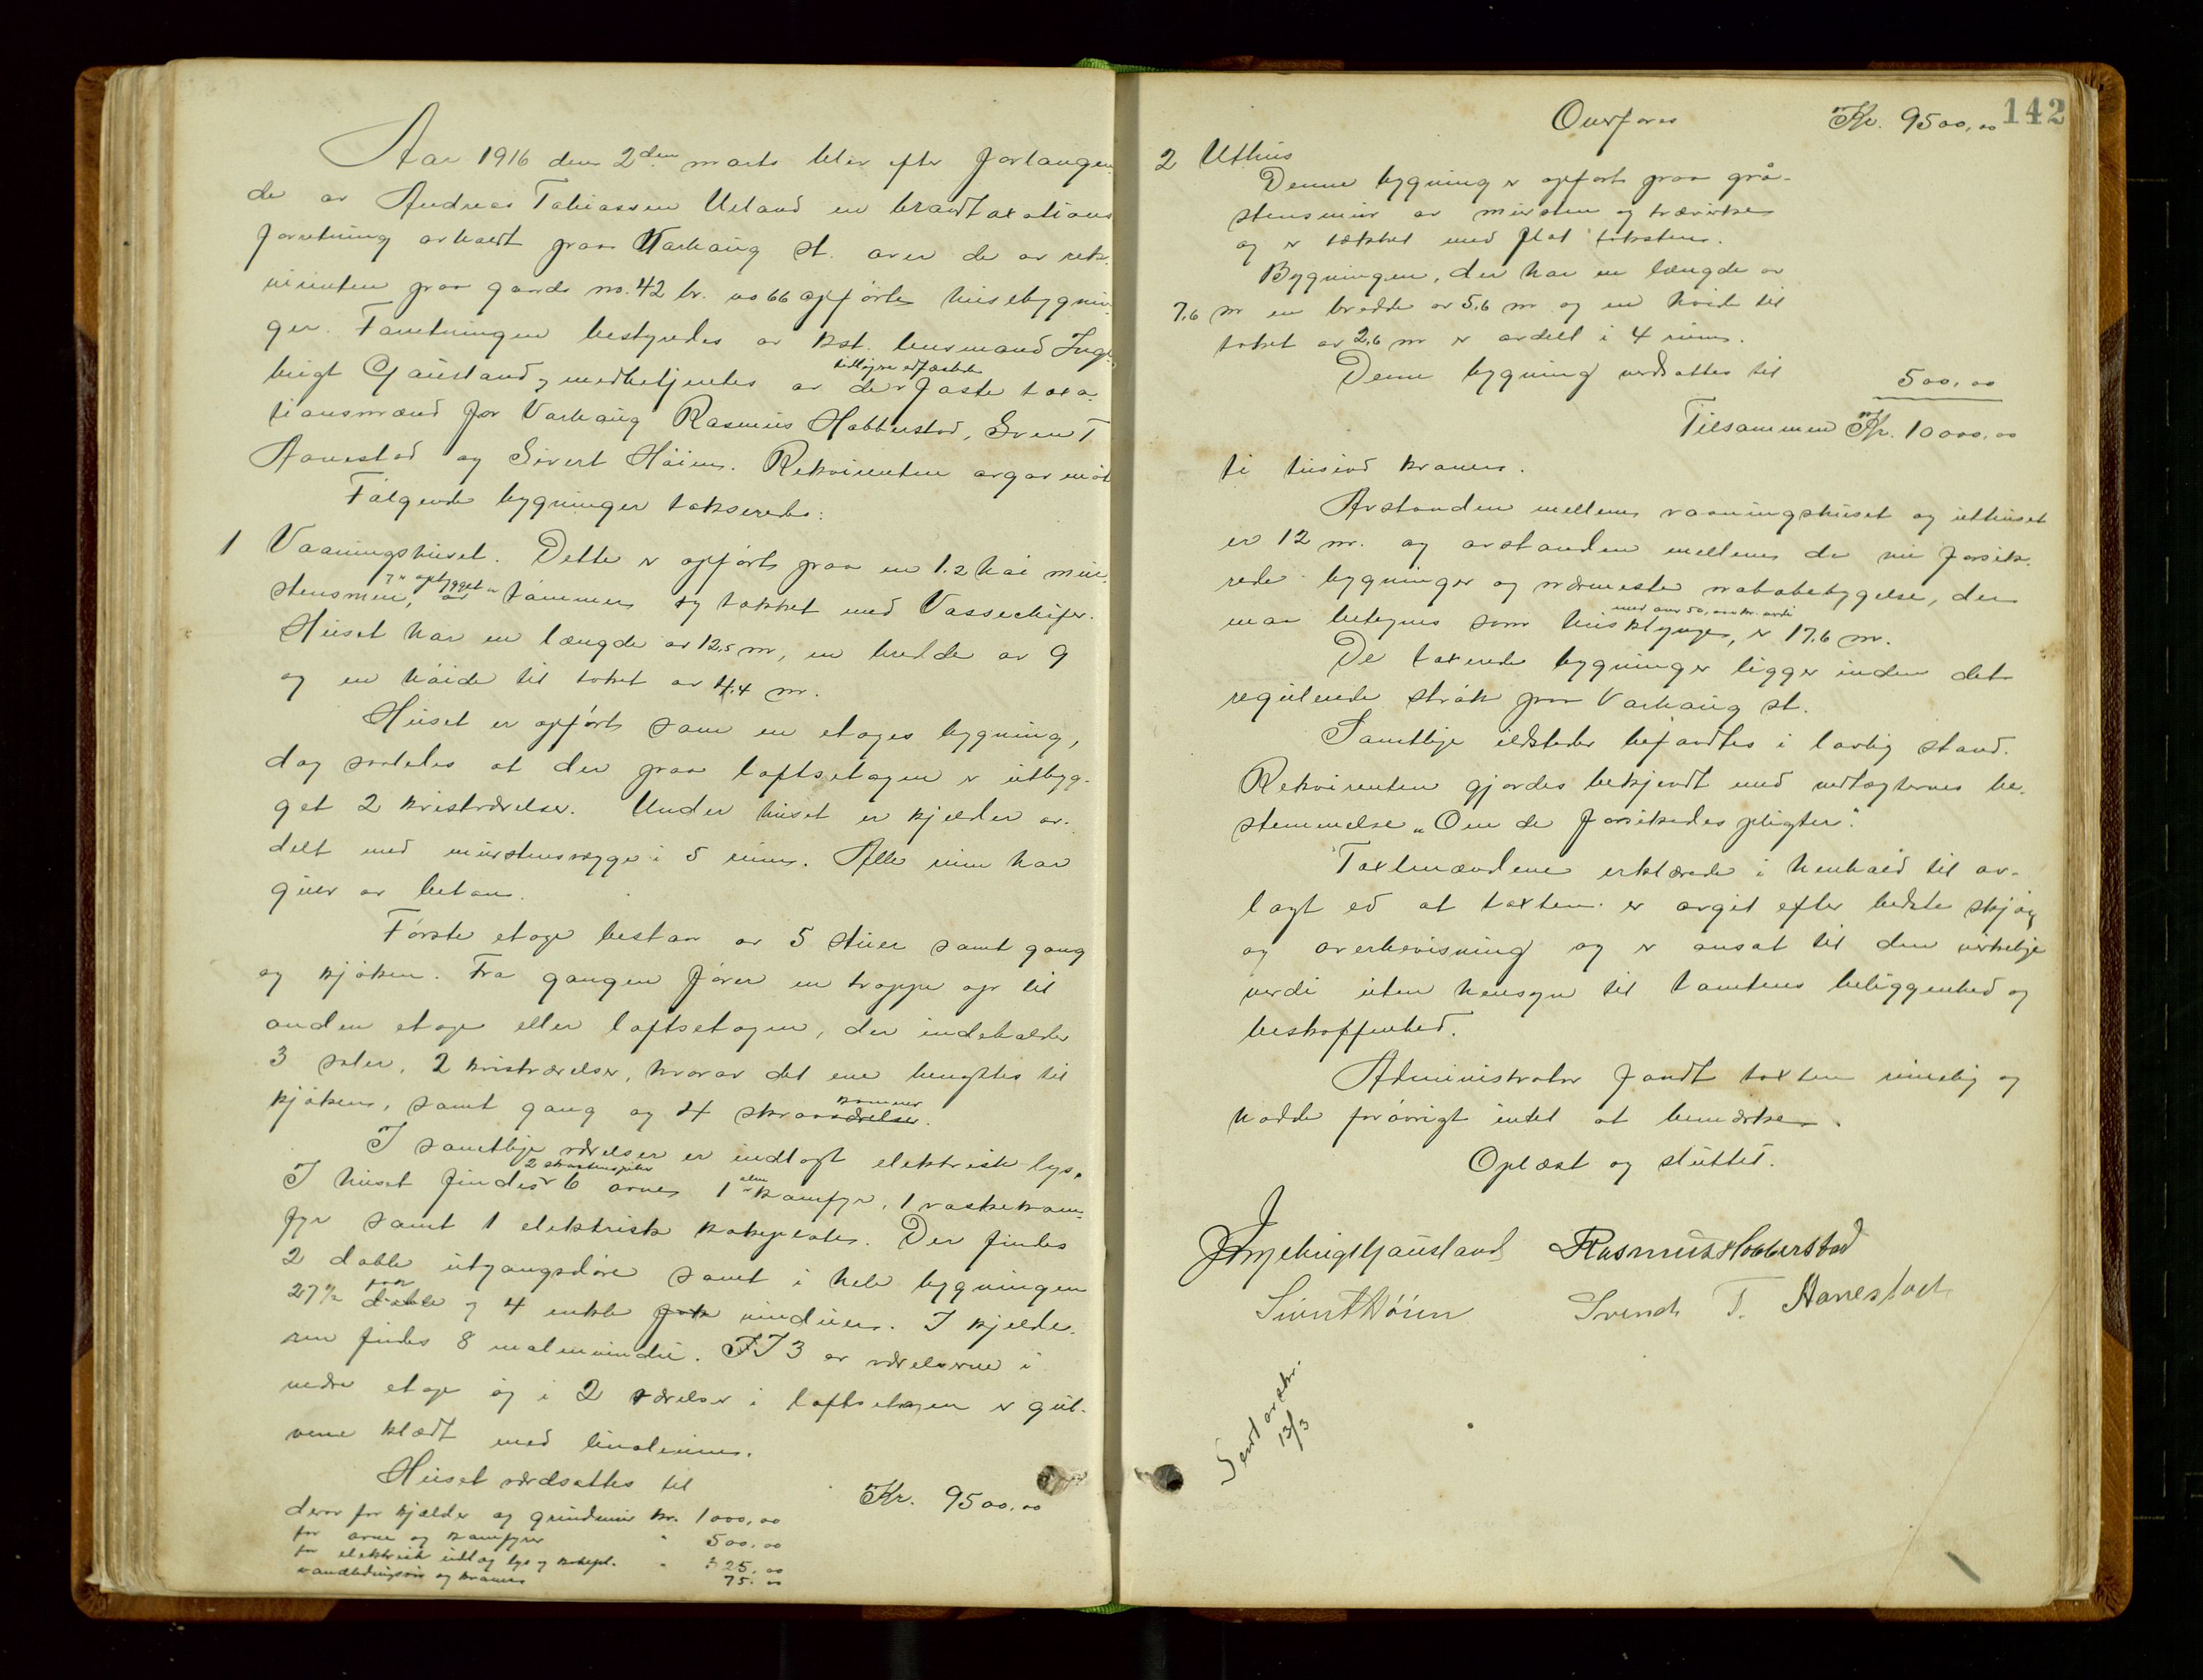 Aar 1916 den 2den marts blev efter forlangen-
de av Andreas Tobiassen Ueland en brandtaxations
forretning avholdt paa Varhaug st. over de av rek-
virenten paa gaards no. 42 br. no 66 opförte husebygnin-
ger. Forretningen bestyredes av kst. lensmand Inge-
brigt Gausland, medbetjentes av de tillikemed faste taxa-
tionsmænd for Varhaug Rasmus Hobberstad, Sven T
Aanestad og Sivert Höien. Rekvirenten avgav möt
Følgende bygninger takseredes:
1 Vaaningshuset. Dette er opfört paa en 1.2 höi mur-
stensmur, er opbygget av tömmer og tækket med Vasseskifer.
Huset har en længde av 12,5 m, en bredde av 9
og en höide til taket av 4.4 m.
Huset er opfört som en etages bygning,
dog saaledes at der paa loftsetagen er utbyg-
get 2 kvistværelser. Under huset er kjelder av-
delt med murstensvægge i 5 rum. Alle rum har
gulv av beton.
Förste etage bestaar av 5 stuer samt gang
og kjöken. Fra gangen förer en trappe op til
anden etage eller loftsetagen, der indeholder
3 saler, 2 kvistværelser, hvorav det ene benyttes til
kjöken, samt gang og 4 skraaværelser kammer.
I samtlige værelser er indlagt elektrisk lys.
I huset findes 2 skorstenspiber 6 ovner 1 alm kamfyr, 1 vaskekam-
fyr samt 1 elektrisk kokeplate. Der findes
2 doble utgangsdöre samt i hele bygningen
27½ doble fag og 4 enkle fag vinduer. I kjelde-
ren findes 8 malmvindu. I 3 av værelserne i
nedre etage og i 2 værelser i loftsetagen er gul-
vene klædt med linoleum.
Huset værdsattes til Kr. 9500,00
derav for kjelder og grundmur kr. 1000,00
for ovne og kamfyrer " 500,00
for elektrisk indlæg lys og kokepl. " 325,00
vandledningsrör og kraner 75.00
142
Overföres Kr. 9500,00
2 Uthus
Denne bygning er opfört paa grå-
stensmur av mursten og trævirke
og er tækket med flat taksten.
Bygningen, der har en længde av
7.6 m en bredde av 5.6 m og en höide til
taket av 2.6 m er avdelt i 4 rum.
Denne bygning verdsattes til 500,00
Tilsammen Kr. 10000,00
ti tusind kroner.
Avstanden mellem vaaningshuset og uthuset
er 12 m. og avstanden mellem de nu forsik-
rede bygninger og nærmeste nabobebyggelse, der
maa betegnes som husklynge med over 50,000 kr. verdi, er 17.6 m.
De taxerede bygninger ligger inden det
regulerede strök paa Varhaug st.
Samtlige ildsteder befandtes i lovlig stand.
Rekvirenten gjordes bekjendt med vedtægternes be-
stemmelse "Om de forsikredes pligter".
Taxtmændene erklærede i henhold til av-
lagt ed at taxten er avgit efter bedste skjön
og overbevisning og er ansat til den virkelige
verdi uten hensyn til tomtens beliggenhed og
beskaffenhed.
Administrator fandt taxten rimelig og
hadde forövrigt intet at bemærke.
Oplæst og sluttet.
Ingebrigt Gausland Rasmus Hobberstad
Sivert Höien Svend T. Aanestad
Sendt avskr.
13/3